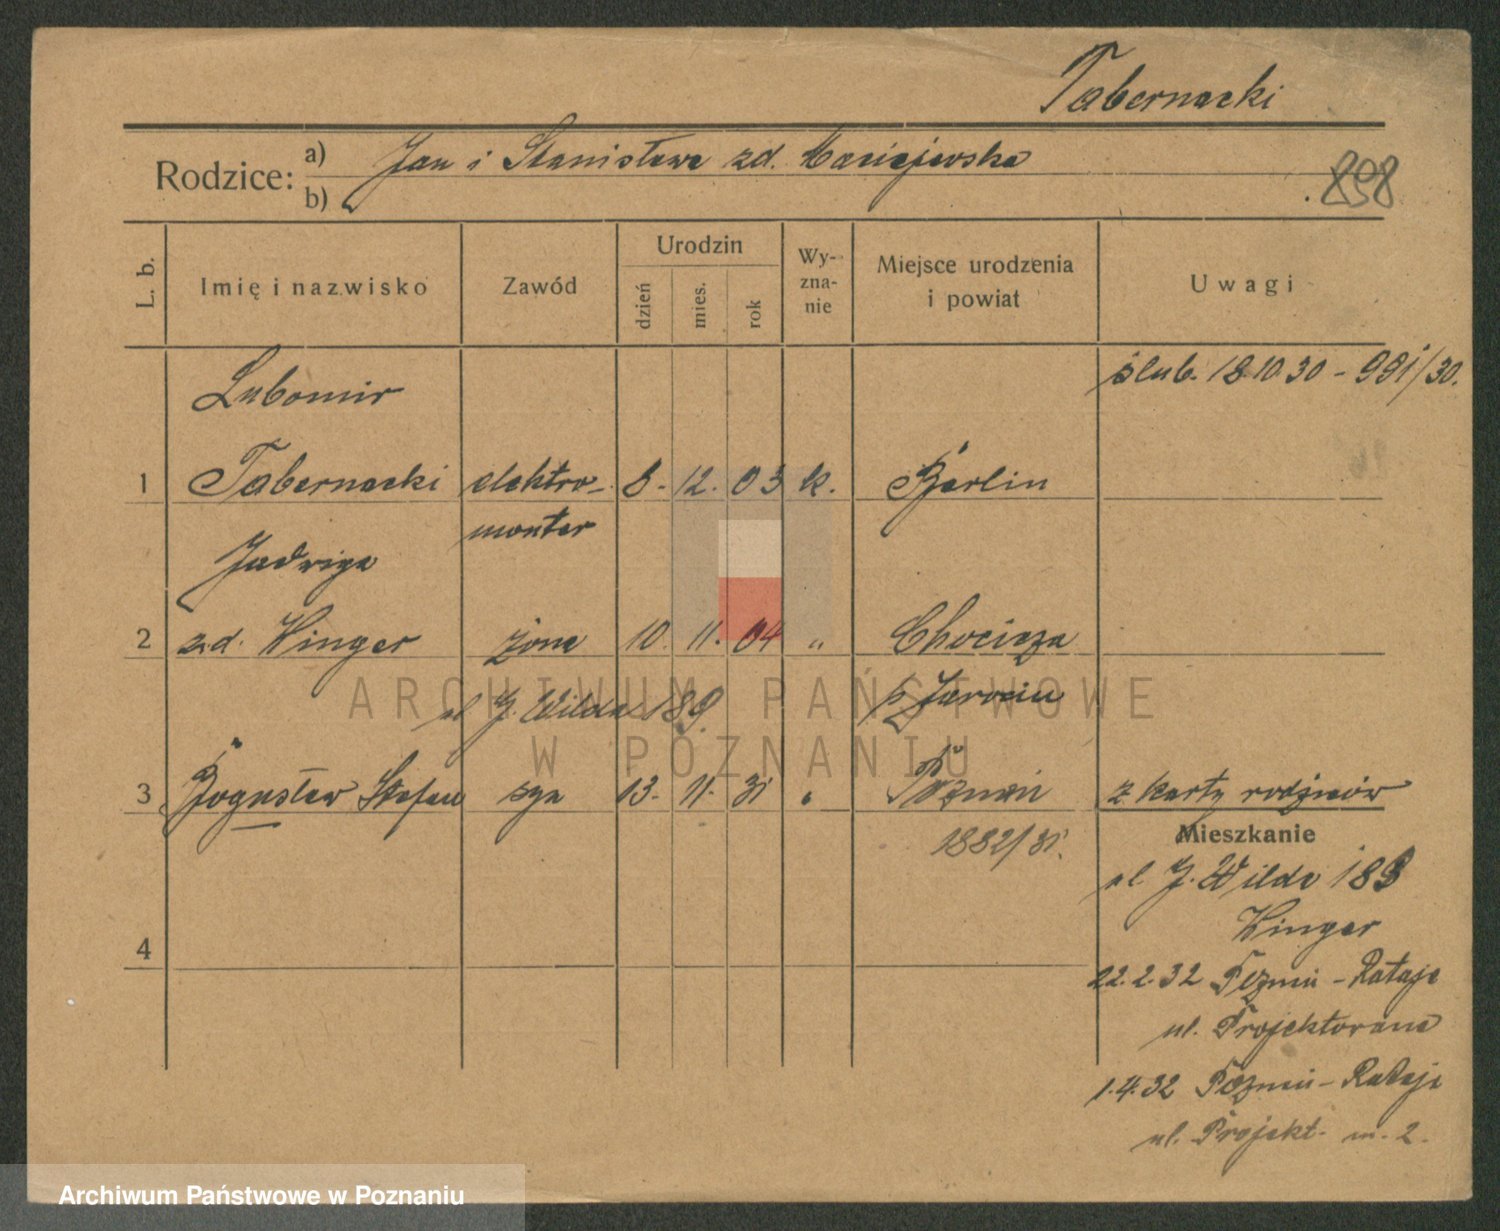 Tabernacki
Rodzice: a) Jan i Stanisława zd. Maciejewska
b)
898
L. b. Imię i nazwisko Zawód Urodzin dzień mies. rok Wyznanie Miejsce urodzenia i powiat Uwagi
ślub. 18.10.30 - 991/30.
Lubomir
1 Tabernacki elektro- 8. 12. 03 k. Berlin
monter
Jadwiga
2 zd. Winger żona 10. 11. 04 " Chocicza
p Jarocin
ul G. Wilda 189
3 Bogusław Stefan syn 13. 11. 31 " Poznań z karty rodziców
1882/31.
Mieszkanie
ul. G. Wilda 189
Winger
4
22.2.32 Poznań - Rataje
ul. Projektowana
1.4.32 Poznań - Rataje
ul. Projekt. m. 2.
ARCHIWUM PAŃSTWOWE
W POZNANIU
Archiwum Państwowe w Poznaniu